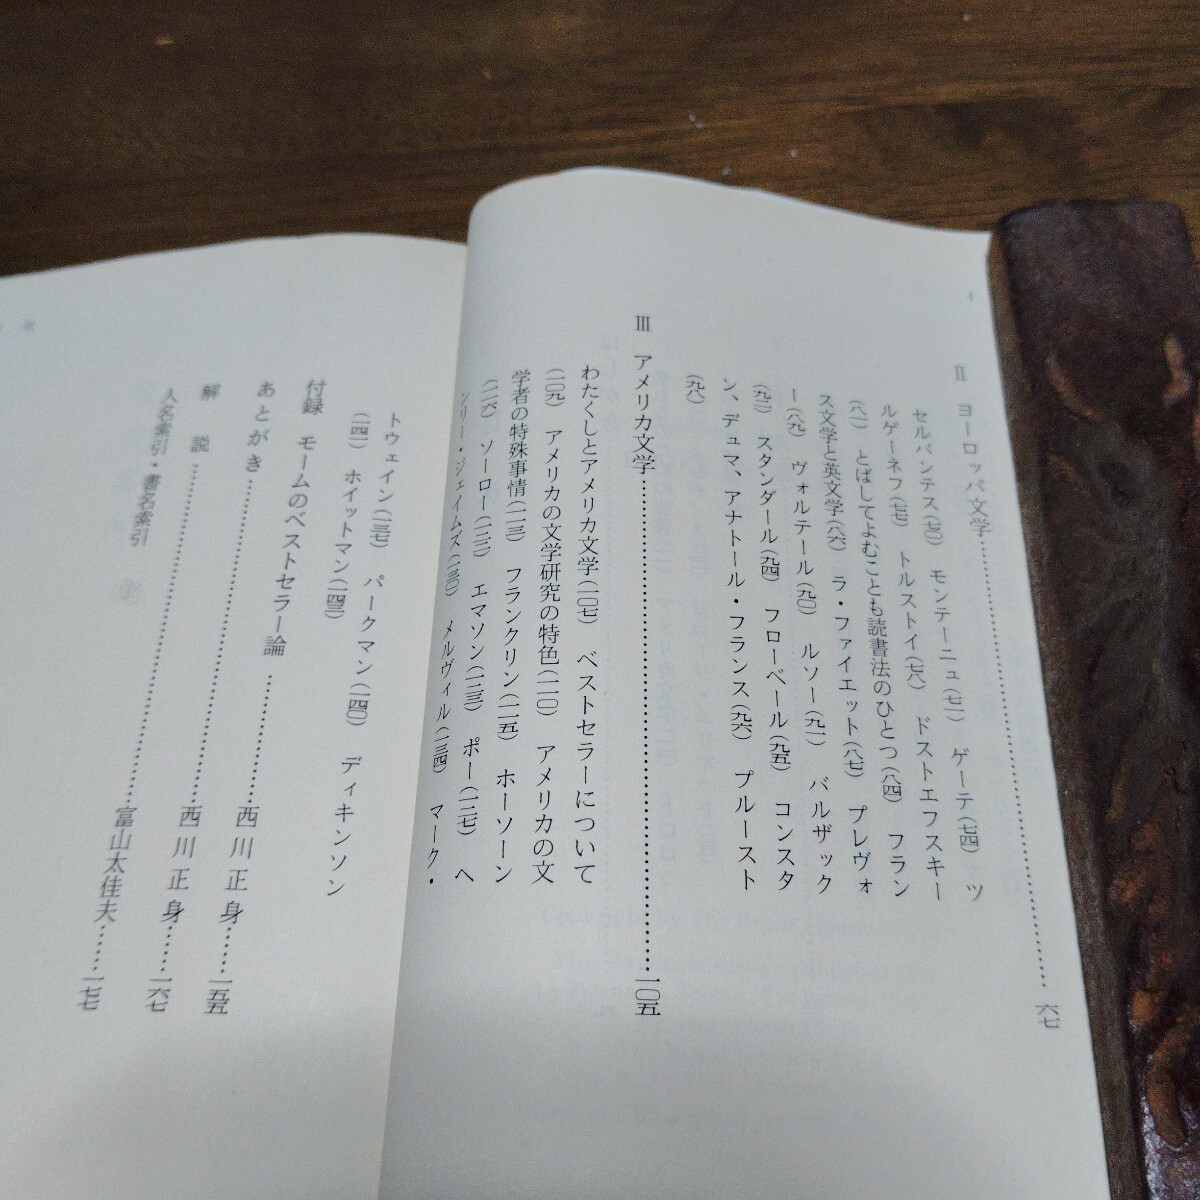 4
Ⅱ ヨーロッパ文学……六七
セルバンテス(七〇) モンテーニュ(七一) ゲーテ(七四) ツ
ルゲーネフ(七七) トルストイ(七八) ドストエフスキー
(八一) とばしてよむことも読書法のひとつ(八四) フラン
ス文学と英文学(八六) ラ・ファイエット(八七) プレヴォ
ー(八九) ヴォルテール(九〇) ルソー(九一) バルザック
(九二) スタンダール(九四) フローベール(九五) コンスタ
ン、デュマ、アナトール・フランス(九六) プルースト
(九八)
Ⅲ アメリカ文学……一〇五
わたくしとアメリカ文学(一〇七) ベストセラーについて
(一〇九) アメリカの文学研究の特色(一一〇) アメリカの文
学者の特殊事情(一一三) フランクリン(一一五) ホーソーン
(一一六) ソーロー(一二二) エマソン(一二三) ポー(一二七) ヘ
ンリー・ジェイムズ(一三〇) メルヴィル(一三四) マーク・
トウェイン(一三七) パークマン(一四〇) ディキンソン
(一四一) ホイットマン(一四三)
付録 モームのベストセラー論……西川正身……一五五
あとがき……西川正身……一六七
解説……富山太佳夫……一七七
人名索引・書名索引